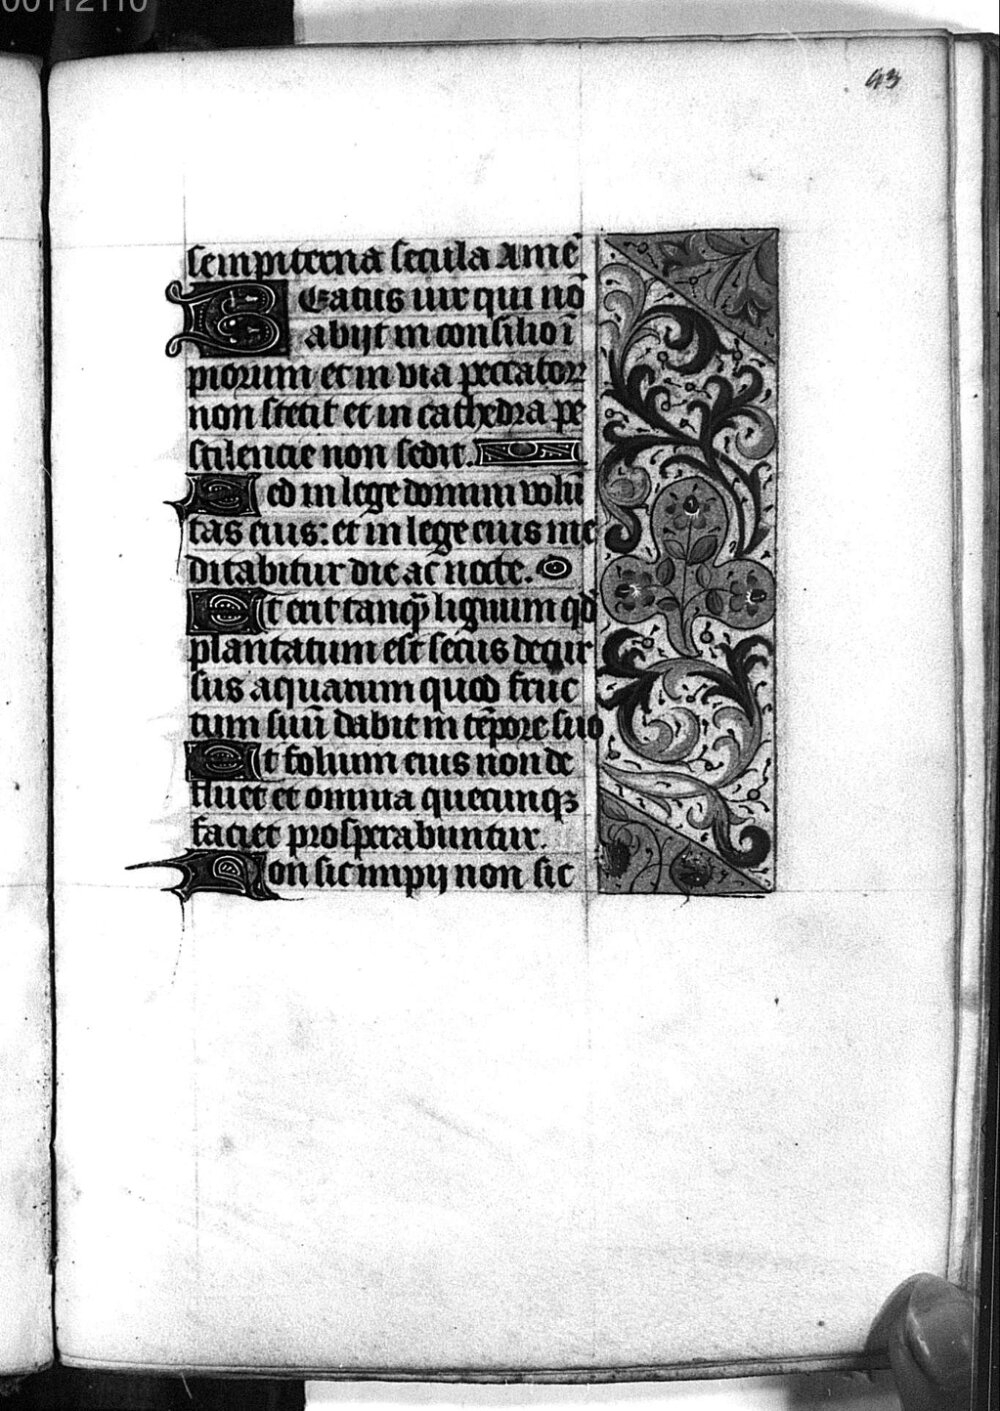 00112110
43
sempiterna secula Amē
Beatus uir qui nō
abijt in consilio ī
piorum et in via peccatorꝝ
non stetit et in cathedra pe
stilencie non sedit.
Sed in lege domini volū
tas eius: et in lege eius me
ditabitur die ac nocte.
Et erit tanqꝫ lignum qd̄
plantatum est secus decur
sus aquarum quod fruc
tum suū dabit in tēpore suo
Et folium eius non de
fluet et omnia quecunqꝫ
faciet prosperabuntur.
Non sic impij non sic